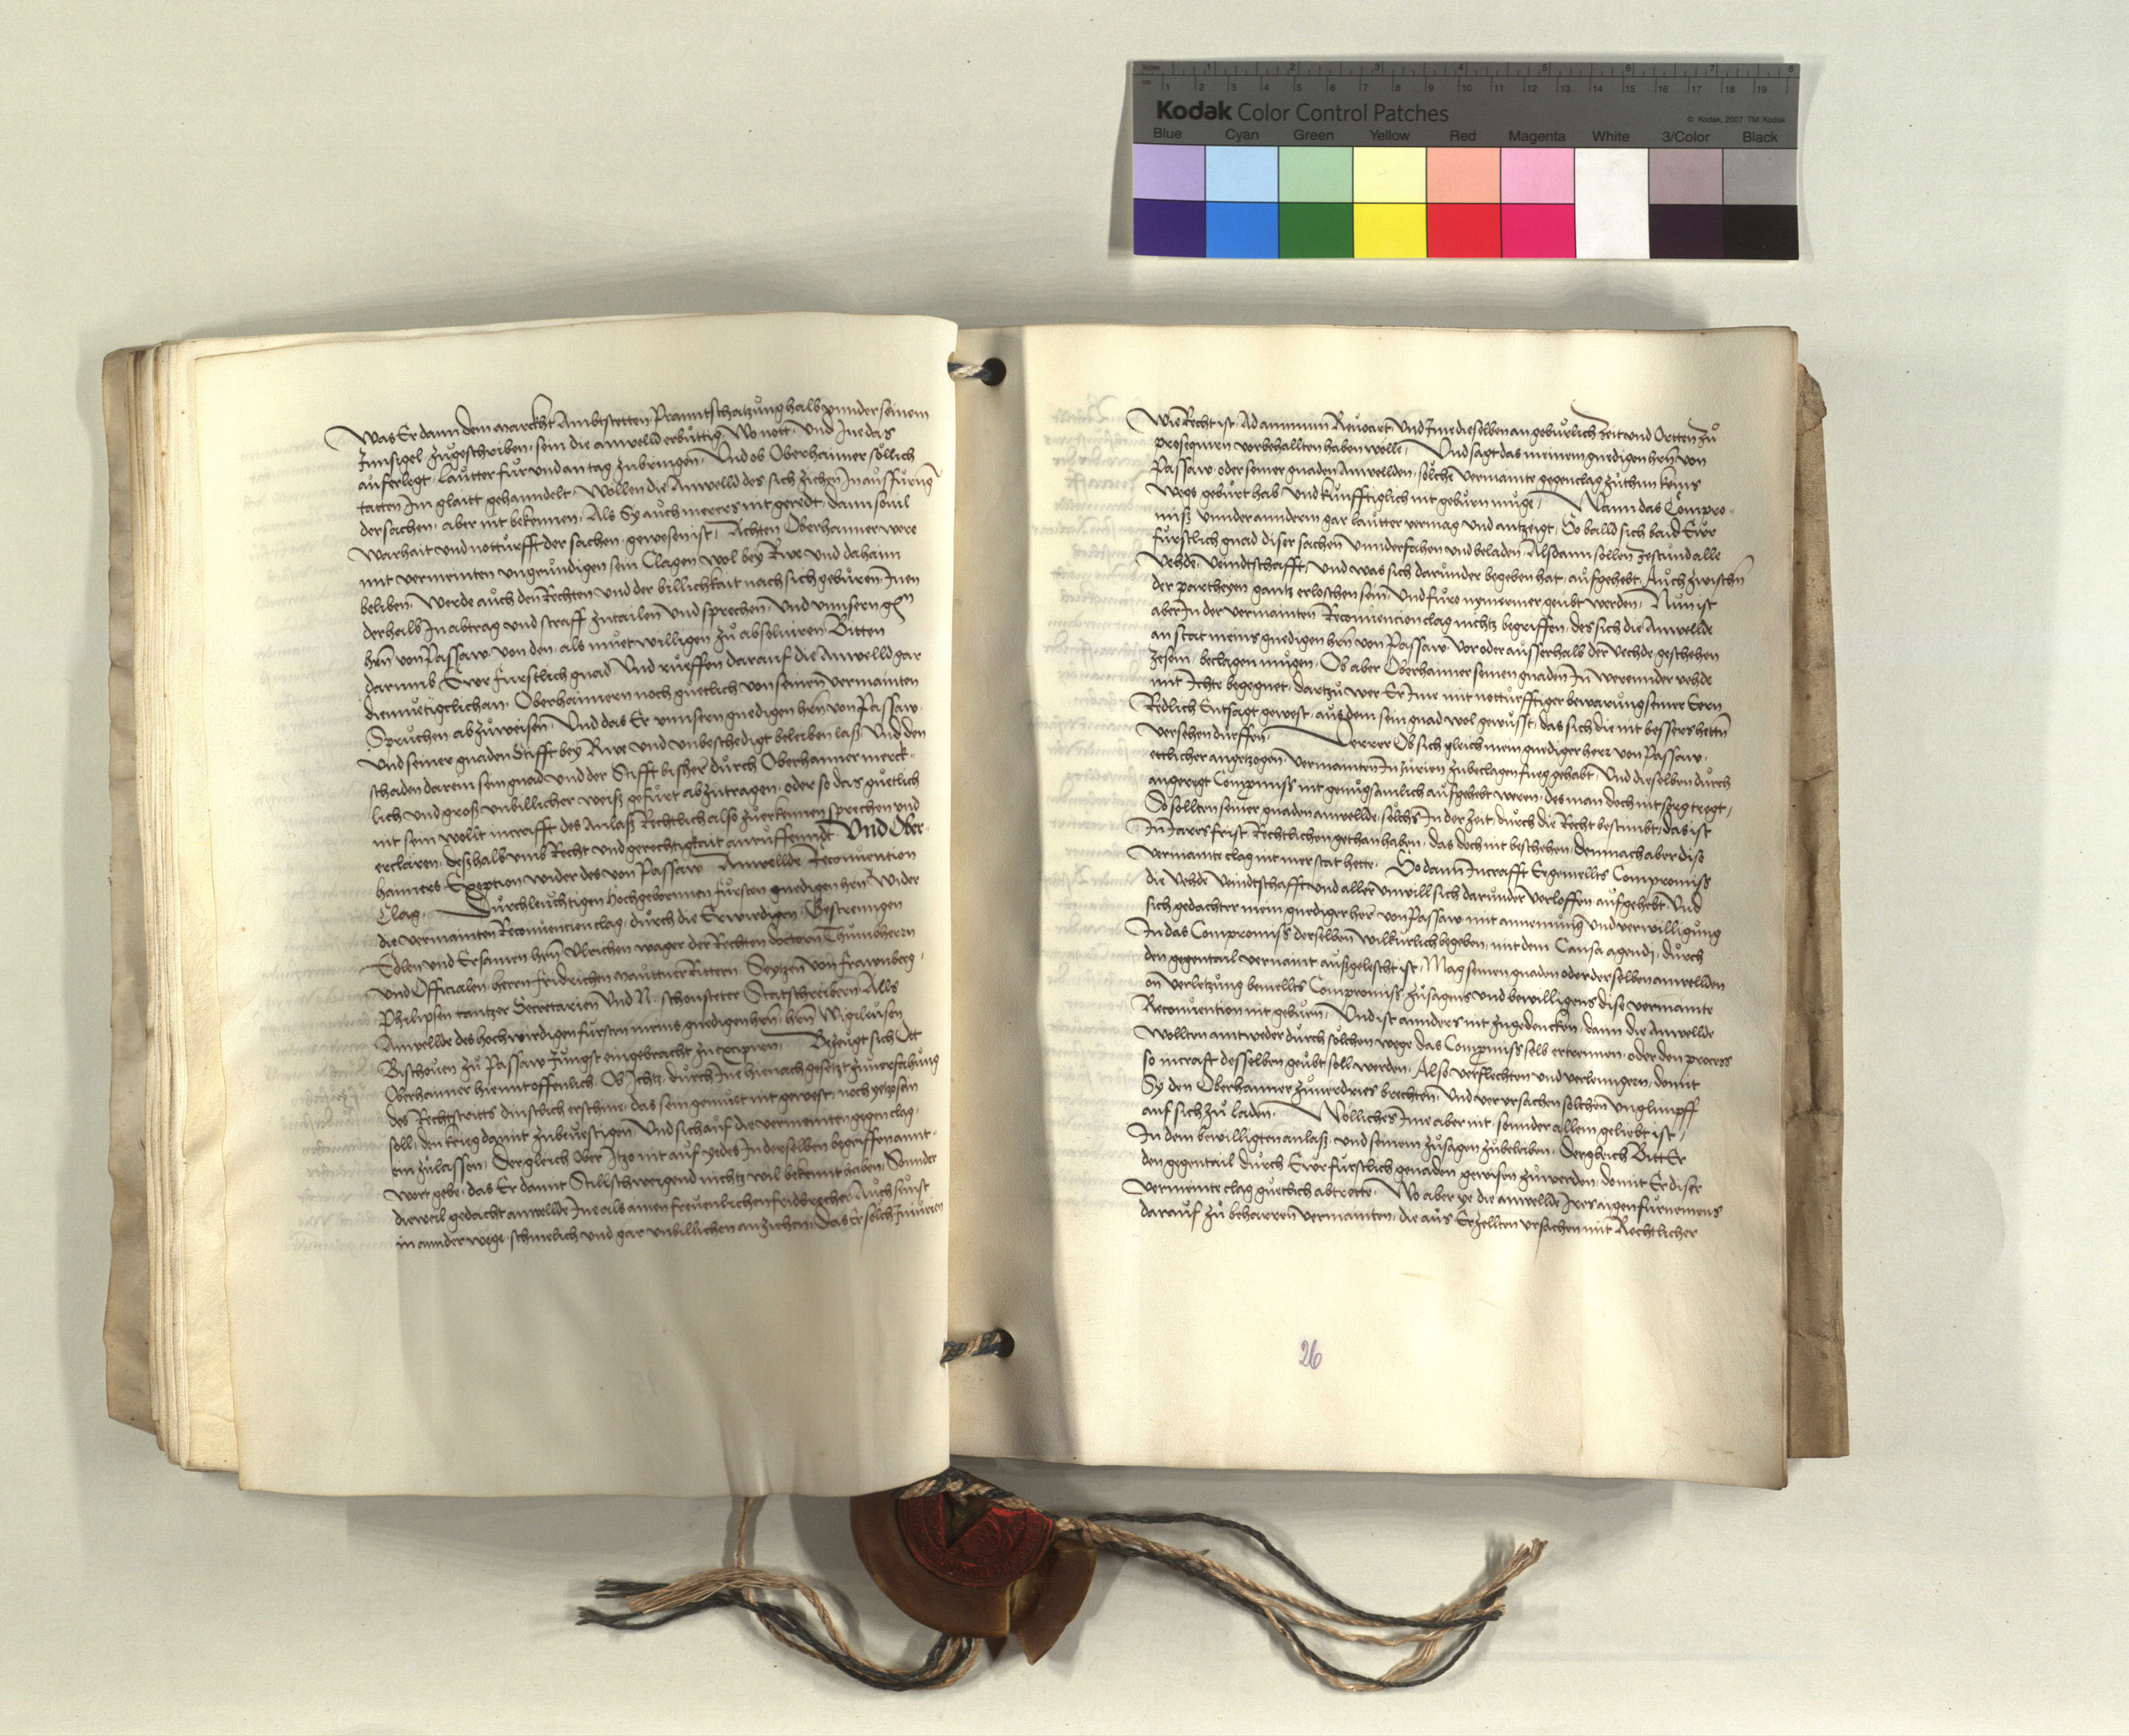 Kodak Color Control Patches
© Kodak, 2007 TM: Kodak
Blue Cyan Green Yellow Red Magenta White 3/Color Black
Was Er dann dem marckht Ambtstetten Pranntschatzung halb vnnder seinem
Innsigel zugeschriben, sein die anwelld erbuttig, Wo nott, Und Ine das
aufferlegt, lautter fur und an tag zubringen, Und ob Oberhaimer sollich
tatten Im glaitt gehanndelt, Wollen die Anwelld des sich ziehen In ausfurung
der sachen, aber nit bekennen, Als Sy auch merers nit geredt, dann souil
warhait und notturfft der sachen gewesen ist, Achten Oberhaimer were
mit vermeinten ungrundigen sein Clagen wol bey Rwe und dahaim
beliben, Werde auch den Rechten und der billichkait nach sich geburen Inen
derhalb In abtrag und straff zutailen und sprechen, Und vnnsern g
hern von Passaw von den, als muetwilligen zu absoluiren Bitten
darumb Ewr furstlich gnad Und rueffen darauf die Anwelld gar
diemuetigclichen, Oberhaimern noch guetlich von seinen vermainten
Spruchen abzuweisen, Und das Er vnnsern gnedigen hern von Passaw
und seiner gnaden Stifft bey Rwe und unbeschedigt beleiben lass Und den
schaden darein sein gnad und der Stifft bisher durch Oberhaimer merck-
lich und gross unbillicher weiss gefurt abzutragen, oder so das guetlich
nit sein wollt incrafft des Anlass Rechtlich also zuerkennen sprechen und
ercleren, desshalb umb Recht und gerechtigkait anruffennd. Und Ober-
haimers Exeption wider des von Passaw Anwellde Reconuention
Clag. Durchleuchtigen Hochgebornnen fursten gnedigen hern Wider
die vermainten Reconuencion clag, durch die Erwirdigen Gestrenngen
Edlen und Ersamen hern Vlrichen wager der Rechten doctorn Thumbherrn
und Officialen herrn fridrichen mauttner Rittern Seytzen von frawnberg,
Philipsen tantzer Secretarien Und N. schonstetter Statschreibern Alls
Anwellde des hochwirdigen fursten meins gnedigen hern, hern Wigileusen
Bischouen zu Passaw Jungst eingebracht zu excipiern, Bezeugt sich Ott
Oberhaimer hiemit offenlich, Ob Ichtz durch Ine hienach gesetzt zuuerfahung
des Rechtstritts dinstlich erschine, das sein gemuet nit gewest, noch yetzo sein
soll, den krieg damit zubeuestigen, Und sich auf die vermainten gegenclag
ein zulassen, Dergleich Ober Itzo nit auf yedes In derselben begriffen annt-
wort gebe, das Er damit Stillschweigend nichtz wil bekennt haben, Sonnder
dieweil gedacht anwellde Ine als ainen freuenlichen fridbrecher Auch sunst
in annder wege schmelich und gar unbillichen anziehen, Das Er solch Iniurien
Wie Recht ist, Ad animum Reuocirt Und Ime dieselben an geburlich Zeit und Ortten zu
prosequiren vorbehallten haben wolle, Und sagt das meinem gnedigen hern von
Passaw oder seiner gnaden Anwellden, solche vermainte gegenclag zuthun keins
wegs geburt hab und kunfftiglich nit geburn muge, Wann das Compro-
miss vnnder annderm gar lautter vermag und antzeigt, So balld sich baid Ewr
furstlich gnad diser sachen vnnderfahen und beladen, Alsdann sollen zestund alle
Vehde, Veindtschafft, und was sich darunder begeben hat, aufgehebt, Auch zwischn
der partheyen gantz erloschen sein, Und furo nymermer geubt werden, Nun ist
aber In der vermainten Reconuencion clag nichtz begriffen, des sich die Anwellde
an stat meins gnedigen hern von Passaw, vor oder ausserhalb der vechde geschehen
zesein, beclagen mugen, Ob aber Oberhaimer seinen gnaden In werennder vehde
mit Ichte begegnet, dartzu wer Er Ime mit notturfftiger bewarung seiner Eern
Redlich Entsagt gewest, aus dem sein gnad wol gewusst, das sich die nit bessers hettn
versehen durffen Verrer Ob sich gleich mein gnediger herr von Passaw,
ettlicher angetzogen vermainten Iniurien zubeclagen fueg gehabt, Und dieselben durch
angeregt Compromiss nit genugsamlich aufgehebt weren, des man doch nit
So sollten seiner gnaden anwellde, solchs In der Zeit, durch die Recht bestimbt, das ist
In Jars frist, Rechtlichen gethan haben, das doch nit beschehen, demnach aber dise
vermainte clag nit mer stat hette. So dann Incrafft Egemellts Compromiss
die Vehde Veindtschafft und aller unwill sich darunder verloffen aufgehebt Und
sich gedachter mein gnediger herr von Passaw mit annemung und verwilligung
In das Compromiss derselben wilkurlich begeben, mit dem Causa agendi durch
den gegentail vernaint aussgelescht ist, Mag seinen gnaden oder derselben anwellden
on verletzung bemellts Compromiss zusagens und bewilligens dise vermainte
Reconuention nit geburn, Und ist annders nit zugedencken, dann die Anwellde
wollten amtweder durch solchen wege das Compromiss selb ertrennen, oder den process
so incraft desselben geubt soll werden, Also verflechten und verlenngern, domit
Sy den Oberhaimer zuuerdries brechten, Und verursachen solchen unglimpff
auf sich zu laden. Wolliches Ime aber nit, sonnder allein geliebt ist,
In dem bewilligten anlass, und seinem zusagen zubeleiben, Dergleich Bitt Er
den gegentail durch Ewr furstlich genaden gewisen zuwerden, domit Er diser
vermeinte clag guetlich abtrette, Wo aber ye die anwellde Ires aigen furnemens
darauf zu beharren vermainten, die aus Erzellten ursachen mit Rechtlicher
26